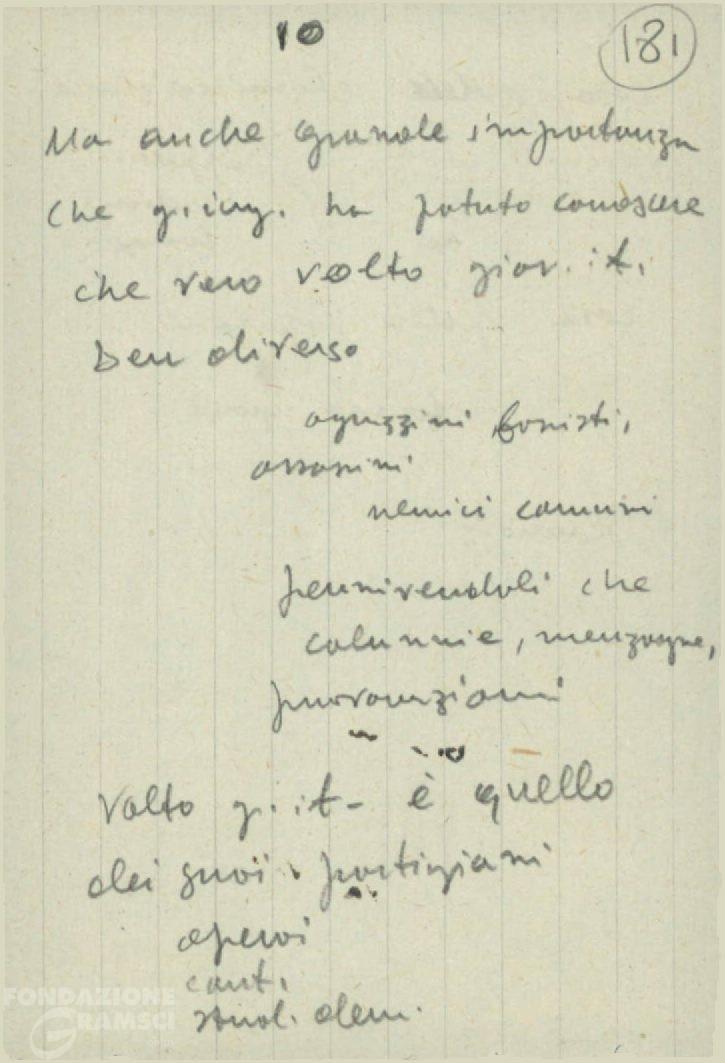 10
181
Ma anche grande importanza
che g. ing. ha potuto conoscere
che vero volto giov. it.
ben diverso
aguzzini fascisti,
assassini
nemici comuni
pennivendoli che
calunnie, menzogne,
provocazioni
Volto g. it. è quello
dei suoi partigiani
operai
cont.
stud. dem.
FONDAZIONE
GRAMSCI